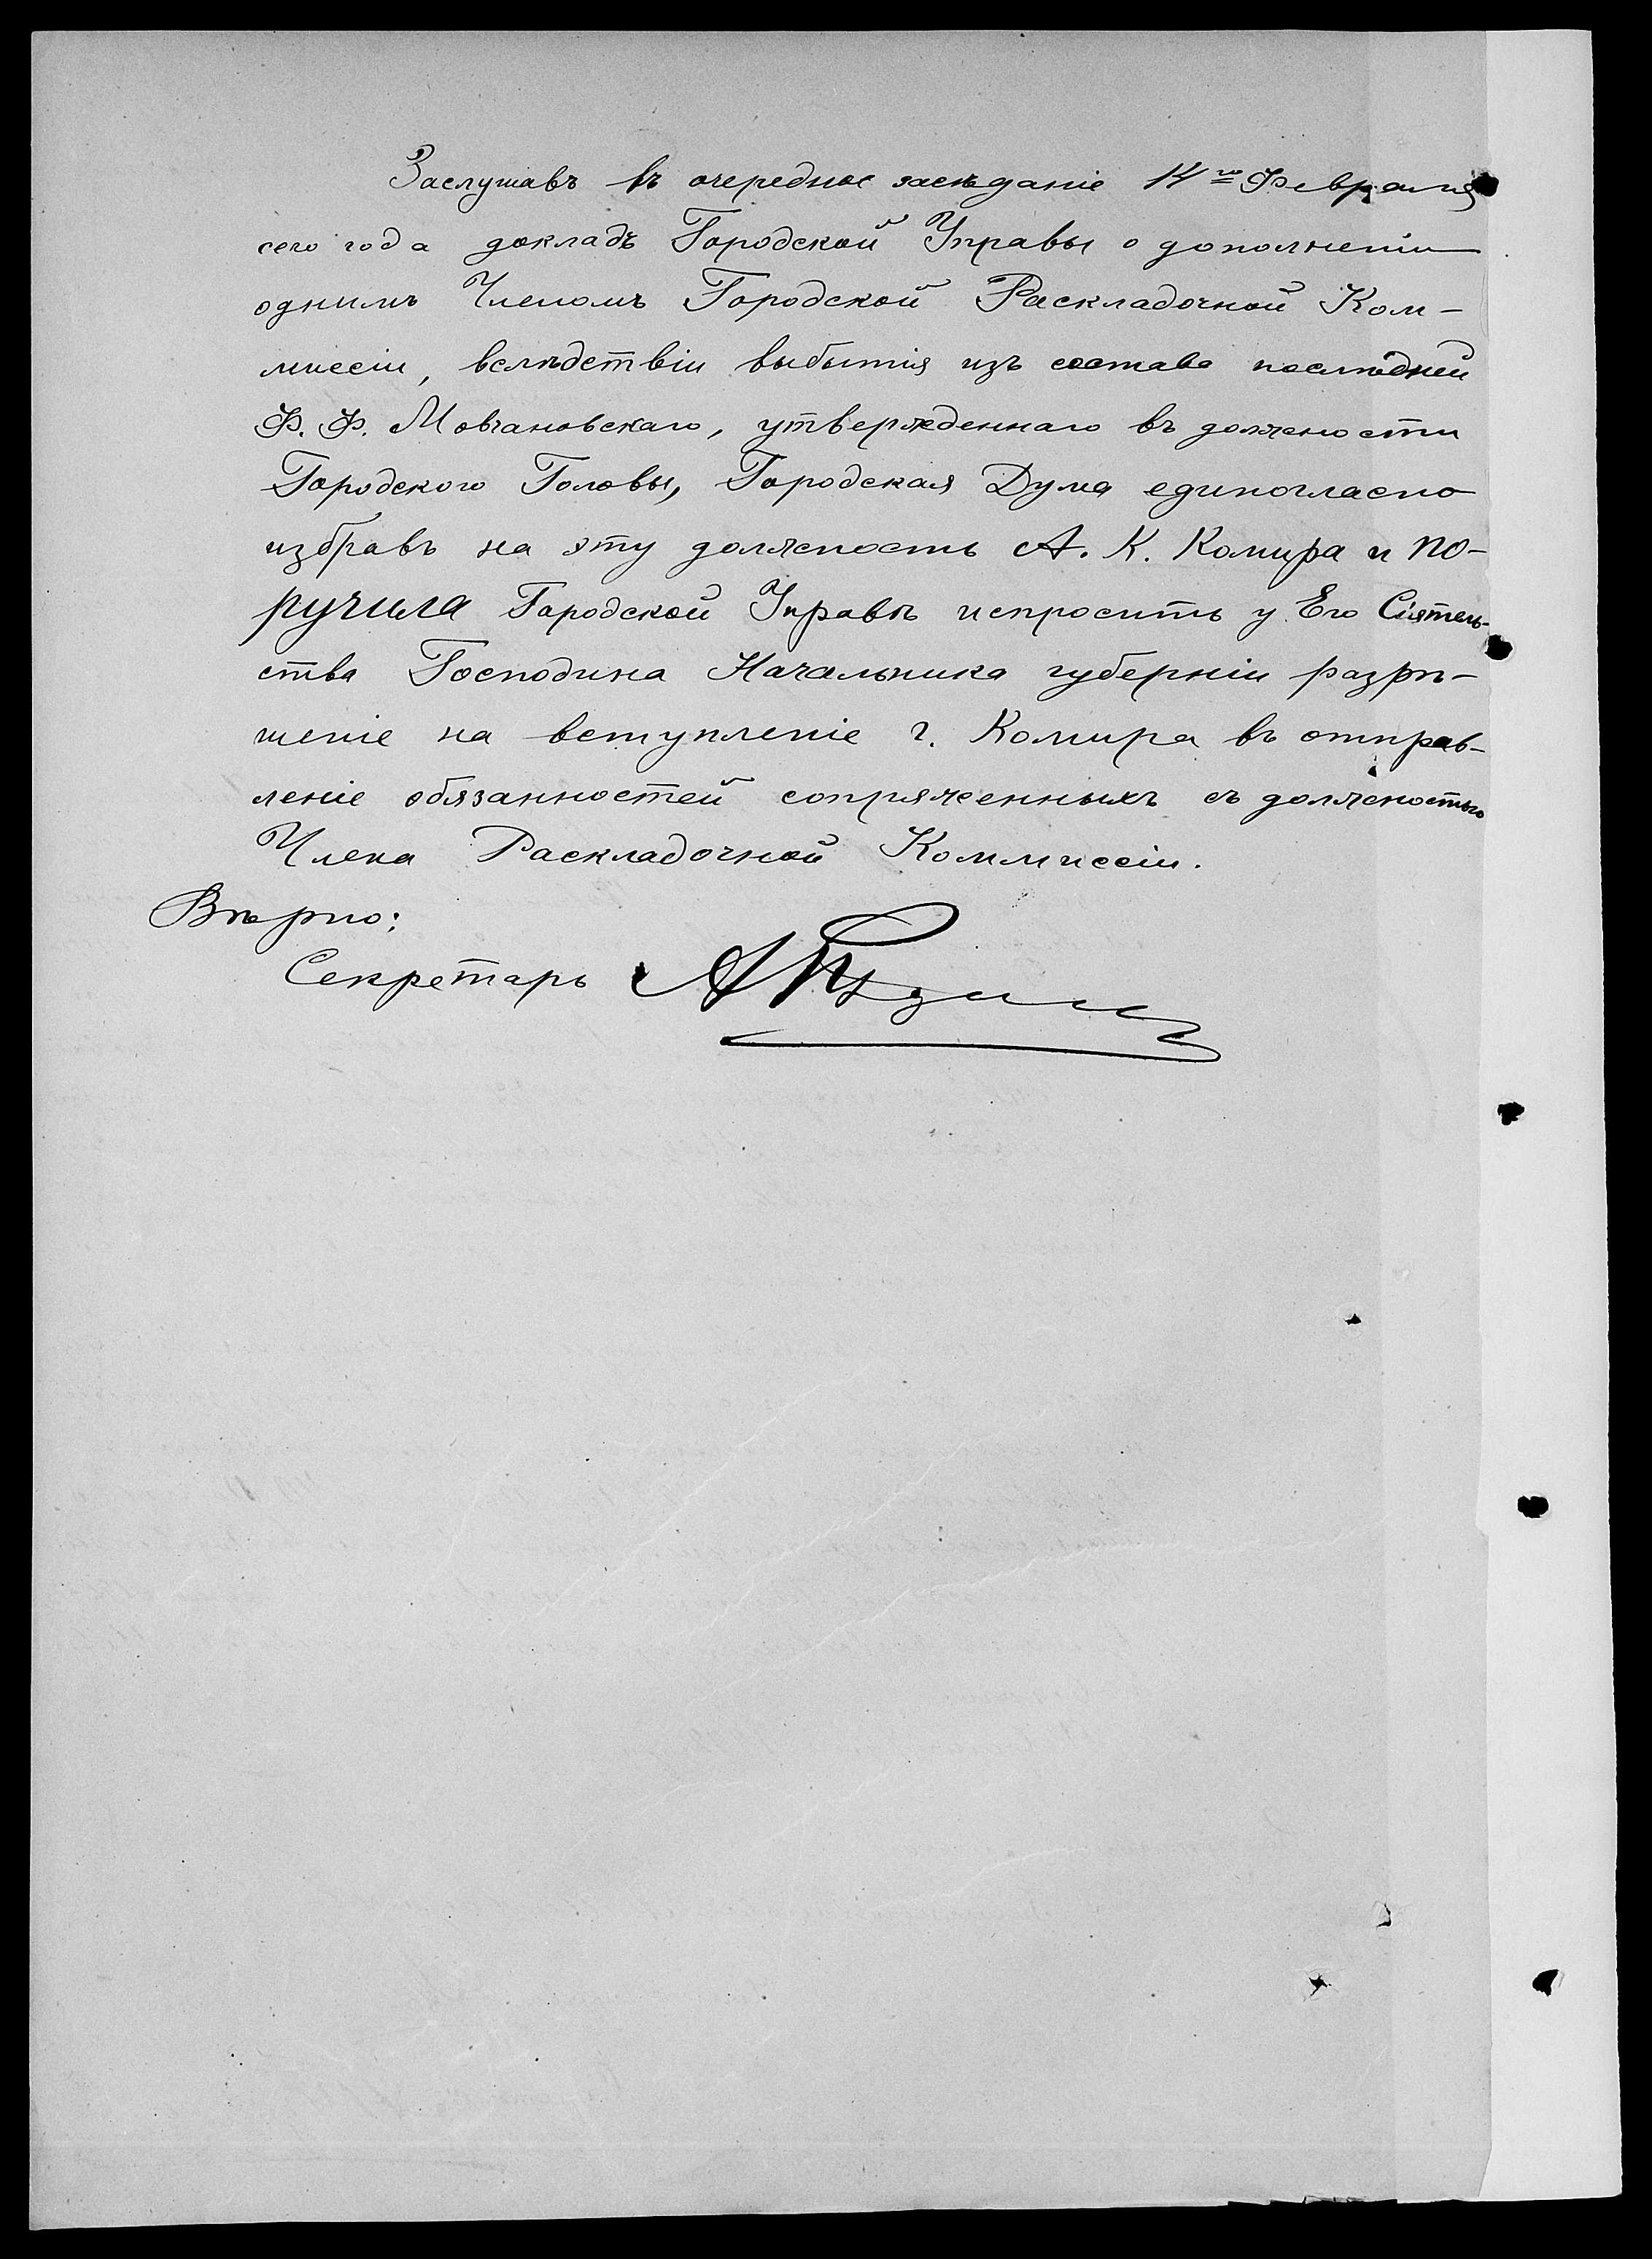 Заслушавъ въ очередное засѣданіе 14го Февраля
сего года докладъ Городской Управы о дополненіи
однимъ Членомъ Городской Раскладочной Ком-
миссіи, вслѣдствіи выбытія изъ состава послѣдней
Ф. Ф. Мовчановскаго, утвержденнаго въ должности
Городского Головы, Городская Дума единогласно
избравъ на эту должность А. К. Комира и по-
ручила Городской Управѣ испросить у Его Сіятель-
ства Господина Начальника губерніи разрѣ-
шеніе на вступленіе г. Комира въ отправ-
леніе обязанностей сопряженныхъ съ должностью
Члена Раскладочной Коммиссіи.
Вѣрно:
Секретарь